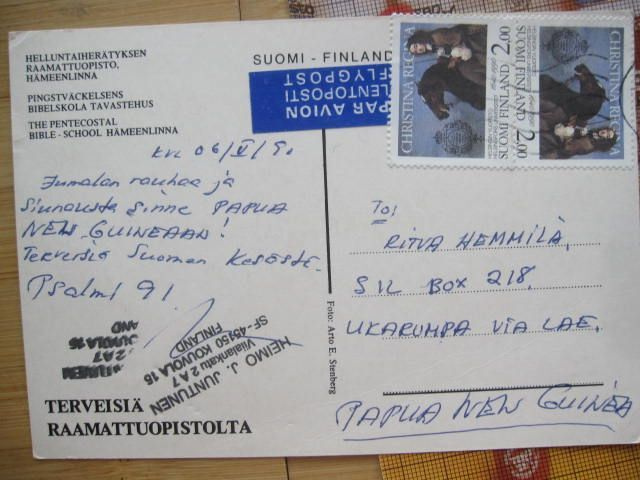 HELLUNTAIHERÄTYKSEN
RAAMATTUOPISTO,
HÄMEENLINNA
PINGSTVÄCKELSENS
BIBELSKOLA TAVASTEHUS
THE PENTECOSTAL
BIBLE - SCHOOL HÄMEENLINNA
SUOMI - FINLAND
PAR AVION
LENTOPOSTI
FLYGPOST
CHRISTINA REGINA
2,00
SUOMI FINLAND
CHRISTINA REGINA
2,00
SUOMI FINLAND
KVL 06/V/90
Jumalan rauhaa ja
Siunausta Sinne PAPUA
NEW GUINEAAN!
Terveisiä Suomen Kesästä.
Psalmi 91
HEIMO J. JUNTUNEN
Vuolankatu 2 A 7
SF-45150 KOUVOLA 15
FINLAND
2 A 7
TERVEISIÄ
RAAMATTUOPISTOLTA
Foto: Arto E. Stenberg
To:
RITVA HEMMILÄ,
SIL BOX 218.
UKARUMPA VIA LAE,
PAPUA NEW GUINEA